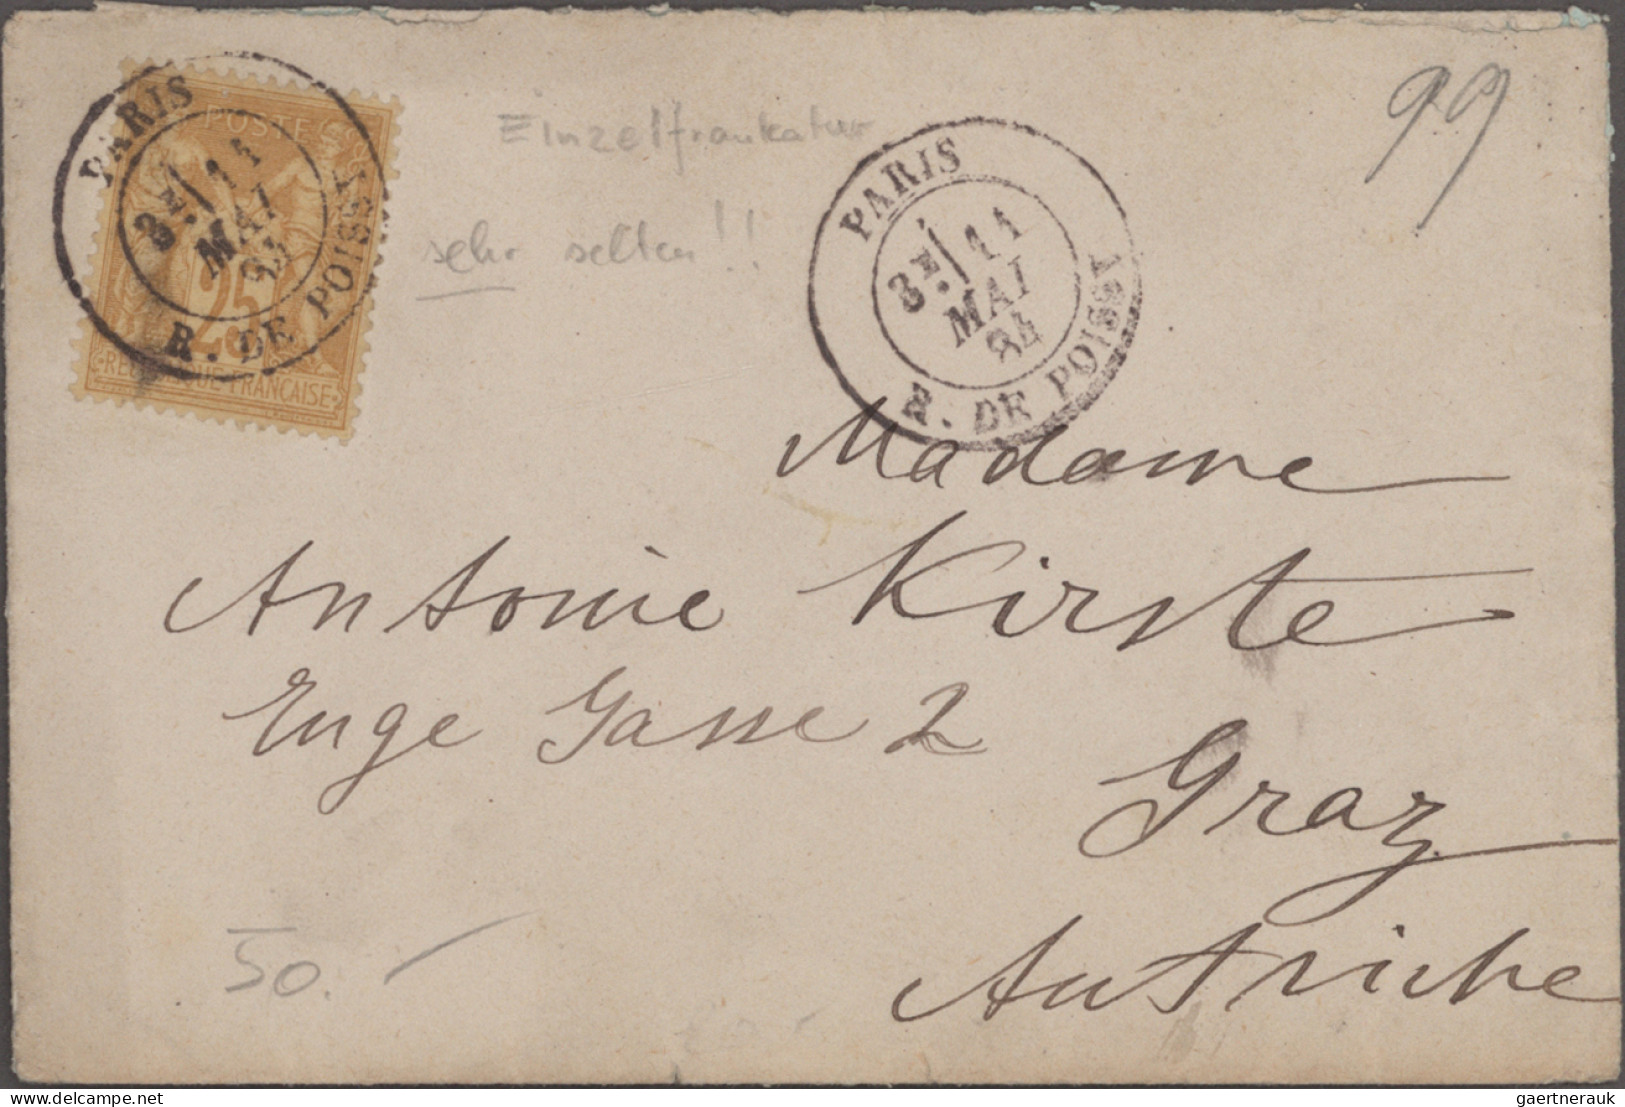 99
POSTE
25
REPUBLIQUE FRANÇAISE
PARIS
3E / 11
MAI
84
R. DE POISSY
Einzelfrankatur
sehr selten!!
PARIS
3E / 11
MAI
84
R. DE POISSY
Madame
Antonie Kirste
Enge Gasse 2
Graz
Autriche
50.-
gaertnerauk